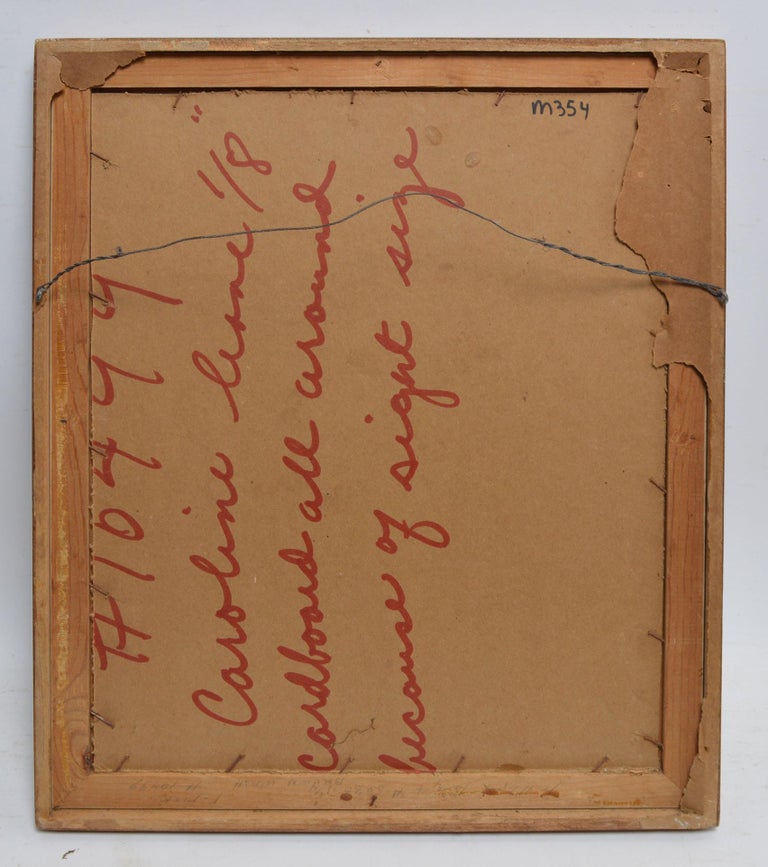 M354
#10499
Caroline leave 1/8"
cardboard all around
because of sight size